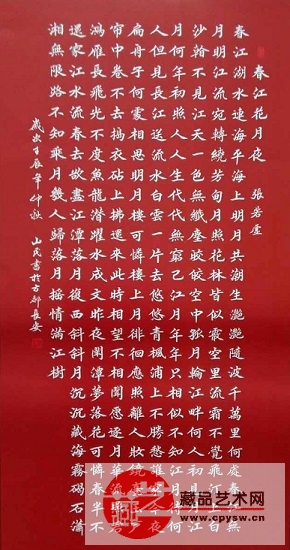 春江花月夜 張若虛
春江湖水連海平海上明月共潮生灩灩隨波千萬里何處春江無
月明江流宛轉繞芳甸月照花林皆似霰空里流霜不覺飛汀上白
沙看不見江天一色無纖塵皎皎空中孤月輪江畔何人初見月江
月何年初照人人生代代無窮已江月年年只相似不知江月待何
人但見長江送流水白雲一片去悠悠青楓浦上不勝愁誰家今夜
扁舟子何處相思明月樓可憐樓上月徘徊應照離人妝鏡
帘中卷不去搗衣砧上拂還來此時相望不相聞願逐月華流照
鴻雁長飛光不度魚龍潛躍水成文昨夜閑潭夢落花可憐春半不
還家江水流春去欲盡江潭落月復西斜斜月沉沉藏海霧碣石瀟
湘無限路不知乘月幾人歸落月搖情滿江樹
歲次壬辰年仲秋 山民書於古都長安
藏品艺术网
www.cpysw.cn